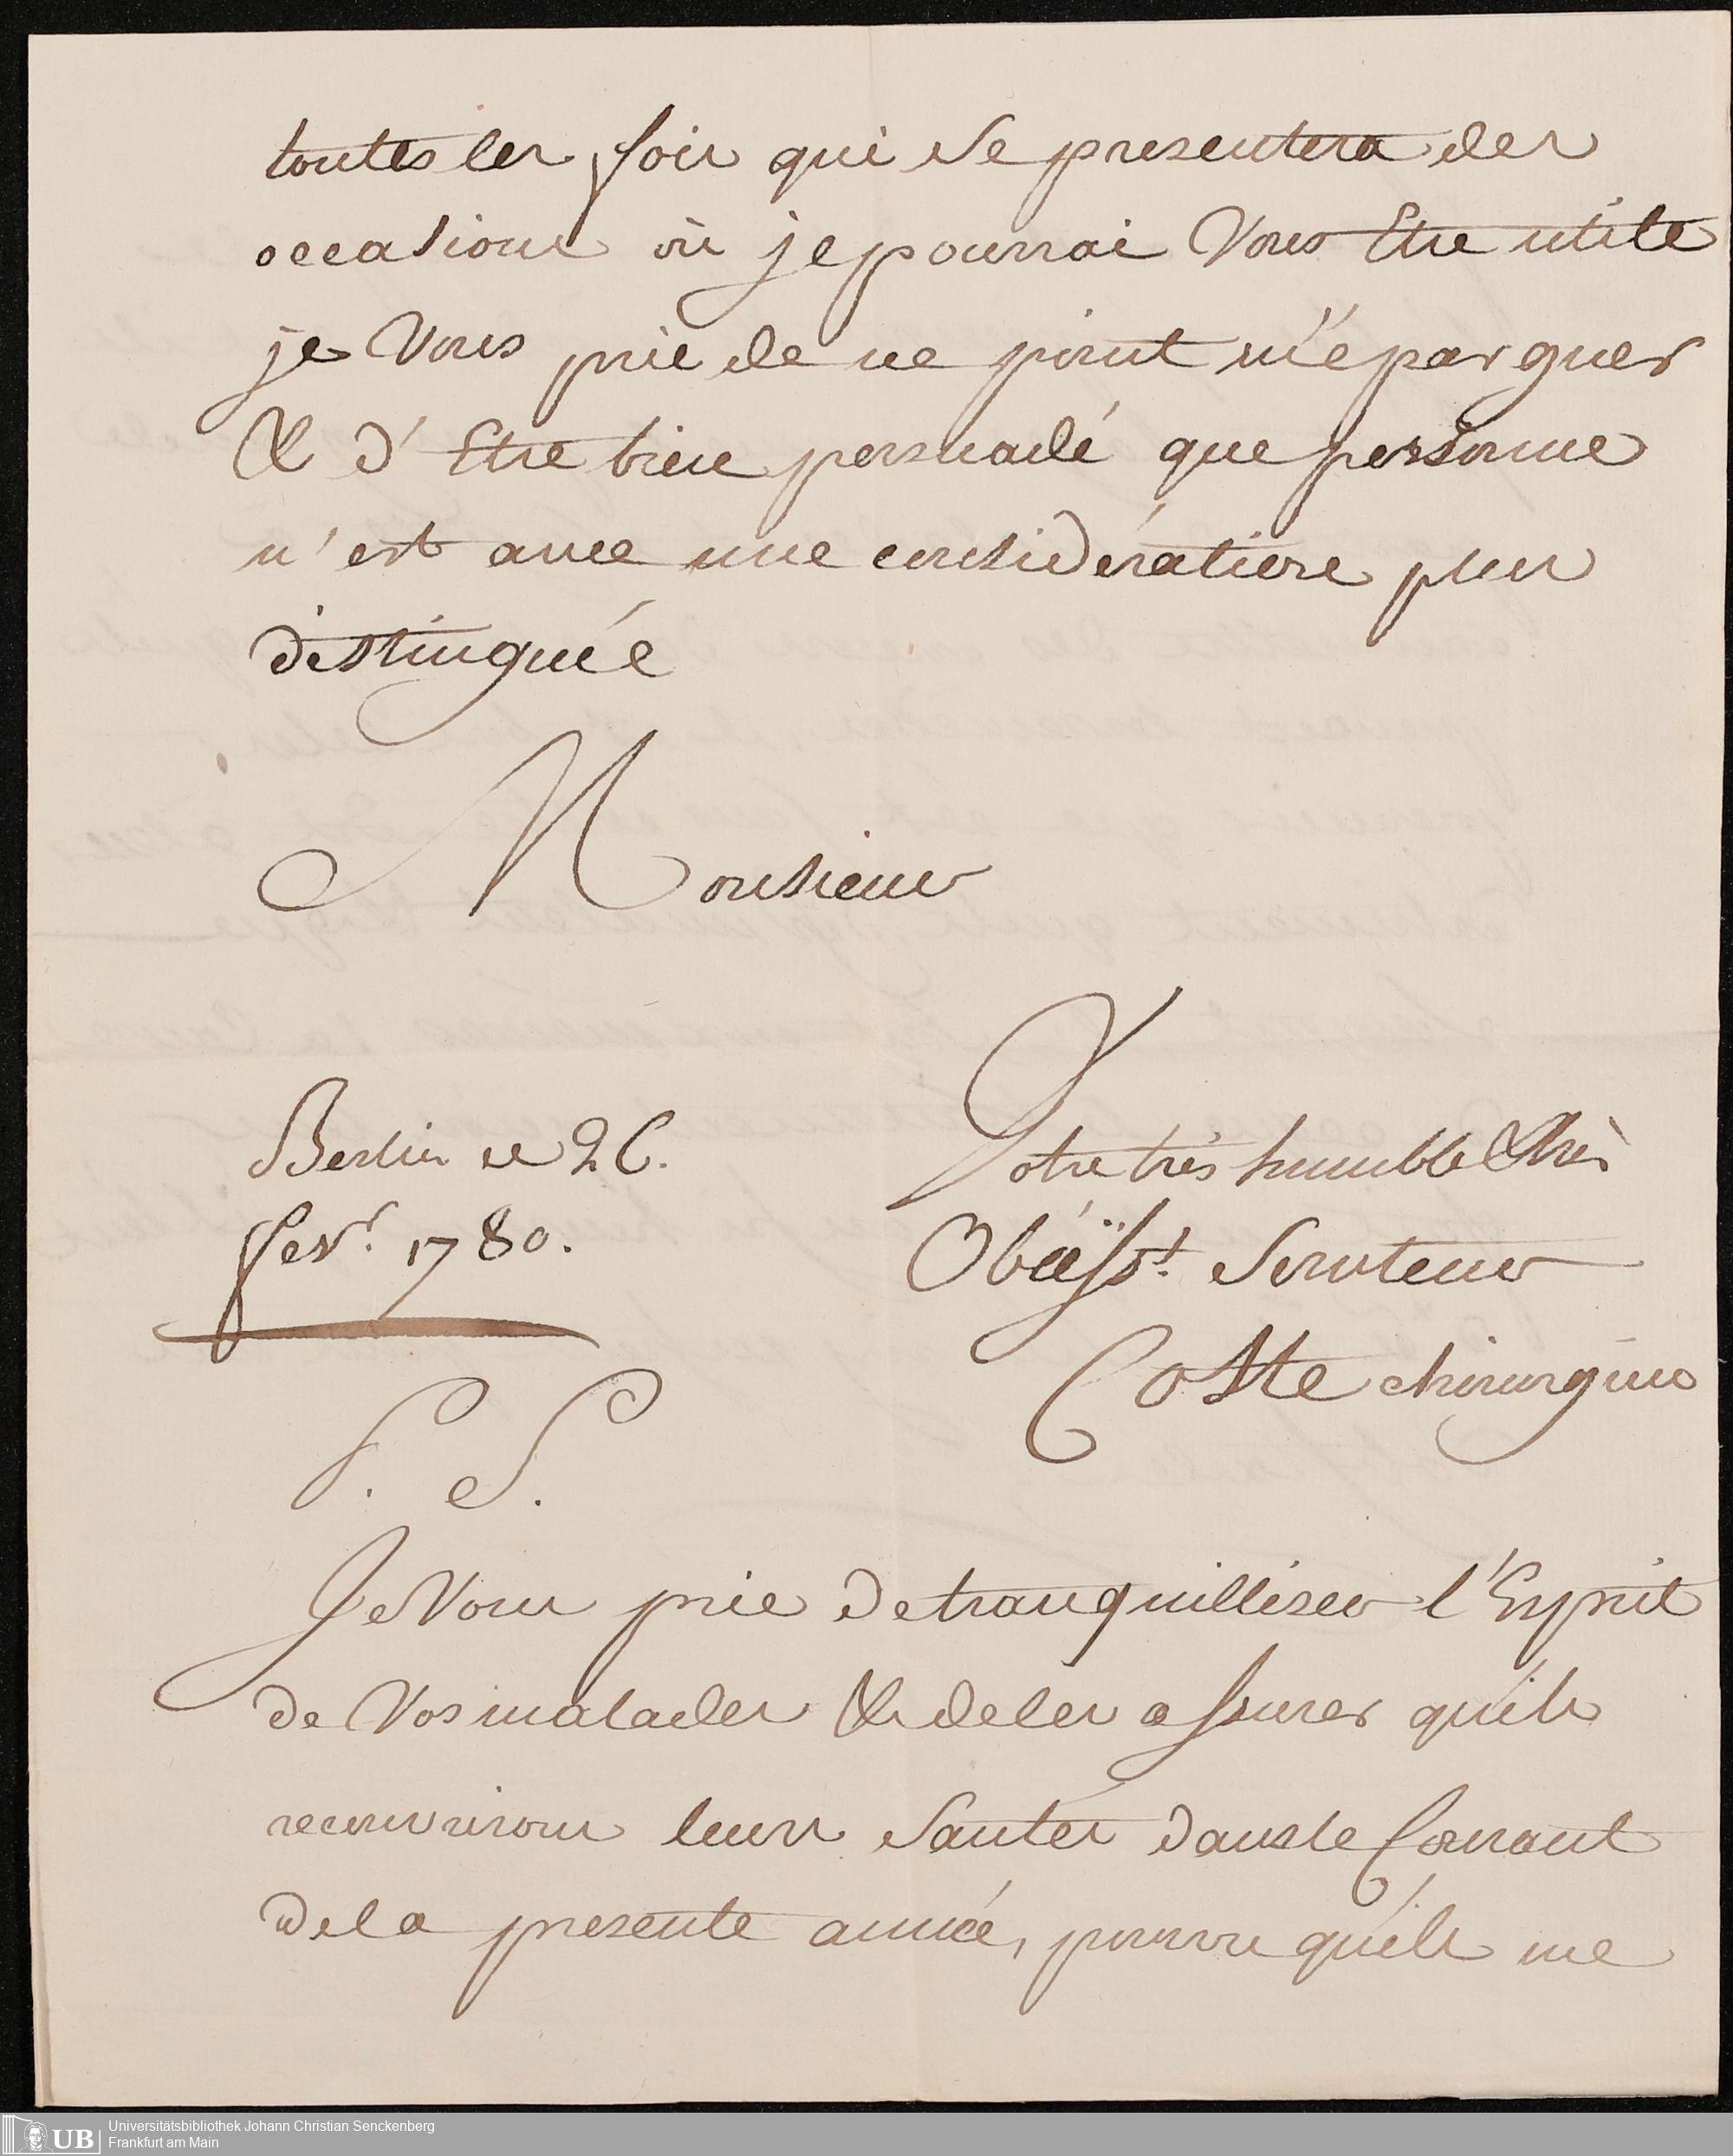 toutes les fois qui se presentera des
occasions où je pourrai Vous Etre utile
je Vous prie de ne point m'épargner
& d'Etre bien persuadé que personne
n'est avec une considération plus
distinguée
Monsieur
Berlin ce 26.
fevr. 1780.
Votre très humble & très
Obeïsst. Serviteur
Coste chirurgien
P. S.
Je Vous prie de tranquilliser l'Esprit
de Vos malades & de les assurer qu'ils
recouvrirons leurs Santés dans le Courant
de la presente année, pourvu qu'ils me
UB Universitätsbibliothek Johann Christian Senckenberg
Frankfurt am Main